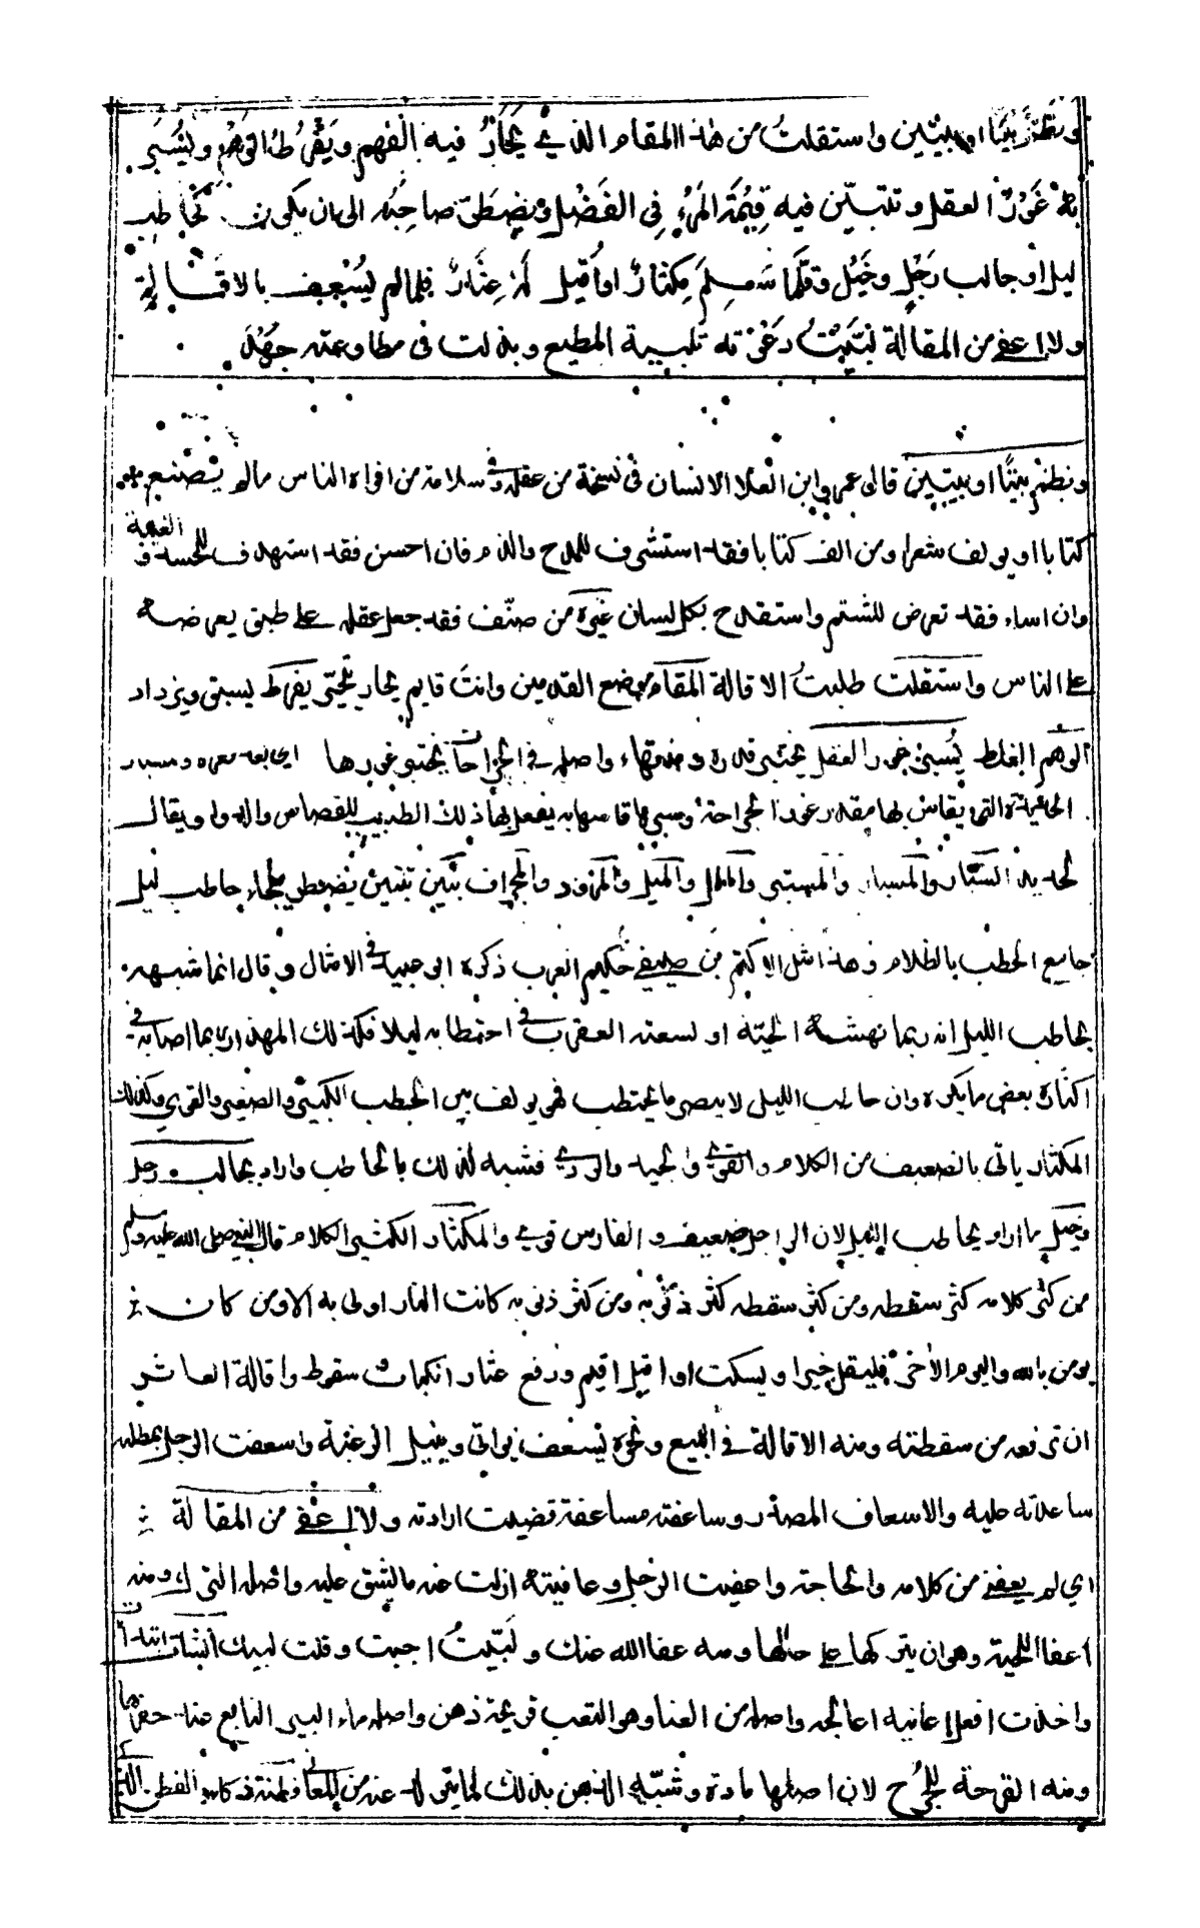 ونظم بيتا او بيتين واستقلت من هذا المقام الذي يحار فيه الفهم ويفرط الوهم ويسبر
به غور العقل وتتبين فيه قيمة المرء في الفضل ويضطر صاحبه الى ان يكون كحاطب
ليل او جالب رجل وخيل وقلما سلم مكثار او اقيل له عثار فلما لم يسعف بالاقالة
ولا اعفى من المقالة لبيت دعوته تلبية المطيع وبذلت في مطاوعته جهد
ونظم بيتا او بيتين قال عمرو ابن العلا الانسان في فسحة من عقله وفي سلامة من افواه الناس مالم يصنع
كتابا او يولف شعرا ومن الف كتابا فقد استشرف للمدح والذم فان احسن فقد استهدف للحسد و الغيبة
وان اساء فقد تعرض للشتم واستقدح بكل لسان غيره من صنف فقد جعل عقله على طبق يعرضه
على الناس واستقلت طلبت الاقالة المقام موضع القدمين وانت قايم يحار يتحير يفرط يسبق ويزداد
الوهم الغلط يسبر غور العقل يختبر قدره ومنتهاه واصله في الجراحات يختبر غورها اي بعد قعره ومسبار
الحديدة التي يقاس بها مقدر غور الجراحة وسبرها قاسها به يفعل بها ذلك الطبيب للقصاص والدوا ويقال
لحديد السبار والمسبار والمسبر والململ والميل والمرود والمجراف تتبين تتبين يضطر يلجاء حاطب ليل
جامع الحطب بالظلام وهذا مثل لاكثم بن صيفي حكيم العرب ذكره ابو عبيد في الامثال وقال انما شبهه
بحاطب الليل انه ربما نهشته الحية او لسعته العقرب في احتطابه ليلا فكذلك المهذار ربما اصابه في
اكثاره بعض ما يكره وان حاطب الليل لا يبصر ما يحتطب فهو يولف بين الحطب الكبير والصغير والقوي وكذلك
المكثار ياتي بالضعيف من الكلام والقوي والجيد والردي فشبه لذلك بالحاطب واراد بجالب رجل
وخيل ما اراد بحاطب الليل لان الراجل ضعيف والفارس قوي والمكثار الكثير الكلام قال النبي صلى الله عليه وسلم
من كثر كلامه كثر سقطه ومن كثر سقطه كثر ذنوبه ومن كثر ذنوبه كانت النار اولى به الا ومن كان
يومن بالله واليوم الآخر فليقل خيرا او يسكت او اقيل اقيم ورفع عثار انكباب سقوط واقالة العاثر
ان ترفعه من سقطته ومنه الاقالة في البيع ونحوه يسعف يواتي وينيل الرغبة واسعفت الرجل بمطلبه
ساعدته عليه والاسعاف المصدر وساعفته مساعفة قضيت ارادته ولا اعفى من المقالة
اي لم يعفني من كلامه والحاجة واعفيت الرجل وعافيته ازلت عنه ما يشق عليه واصله الترك ومنه
اعفا اللحية وهو ان يتركها على حالها ومنه عفا الله عنك ولبيت اجبت وقلت لبيك انشات ابتدات
واخذت افعل اعانيه اعالجه واصله من العنا وهو التعب قريحة ذهن واصله ماء البير النابع عند حفرها
ومنه القرحة للجرح لان اصلها مادة وشبه الذهن بذلك لما يتولد عنه من المعاني وفطنة ذكاء